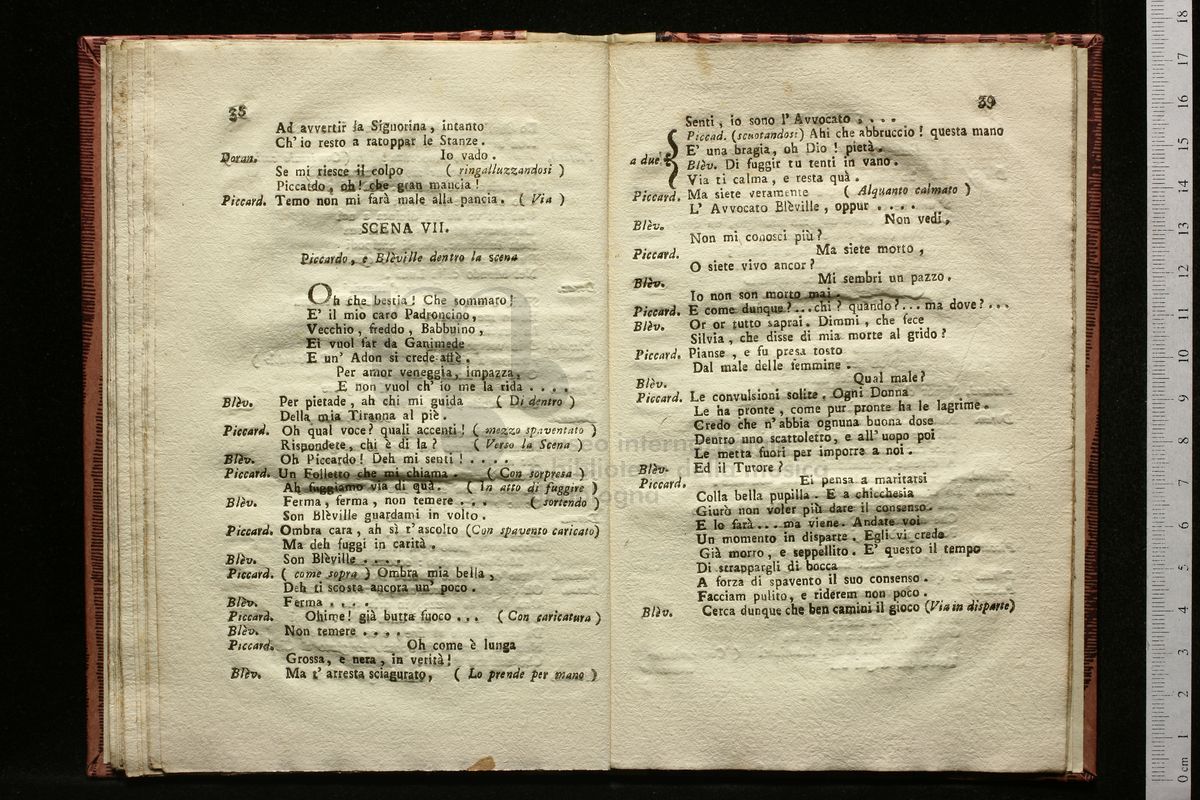 38
Ad avvertir la Signorina, intanto
Ch' io resto a ratoppar le Stanze.
Doran. Io vado.
Se mi riesce il colpo ( ringalluzzandosi )
Piccardo, oh! che gran mancia!
Piccard. Temo non mi farà male alla pancia. ( Via )
SCENA VII.
Piccardo, e Blèville dentro la scena
Oh che bestia! Che sommaro!
E' il mio caro Padroncino,
Vecchio, freddo, Babbuino,
Ei vuol far da Ganimede
E un' Adon si crede affè.
Per amor veneggia, impazza,
E non vuol ch' io me la rida ....
Blèv. Per pietade, ah chi mi guida ( Di dentro )
Della mia Tiranna al piè.
Piccard. Oh qual voce? quali accenti! ( mezzo spaventato )
Rispondete, chi è di là? ( Verso la Scena )
Blèv. Oh Piccardo! Deh mi senti! ....
Piccard. Un Folletto che mi chiama. ( Con sorpresa )
Ah fuggiamo via di quà. ( In atto di fuggire )
Blèv. Ferma, ferma, non temere ... ( sortendo )
Son Blèville guardami in volto.
Piccard. Ombra cara, ah sì t'ascolto (Con spavento caricato)
Ma deh fuggi in carità.
Blèv. Son Blèville ....
Piccard. ( come sopra ) Ombra mia bella,
Deh ti scosta ancora un' poco.
Blèv. Ferma ....
Piccard. Ohime! già butta fuoco ... ( Con caricatura )
Blèv. Non temere ....
Piccard. Oh come è lunga
Grossa, e nera, in verità!
Blèv. Ma t' arresta sciagurato, ( Lo prende per mano )
39
Senti, io sono l' Avvocato ....
a due. Piccad. (scuotandosi) Ahi che abbruccio! questa mano
E' una bragia, oh Dio! pietà.
Blèv. Di fuggir tu tenti in vano.
Via ti calma, e resta quà.
Piccard. Ma siete veramente ( Alquanto calmato )
L' Avvocato Blèville, oppur ....
Blèv. Non vedi,
Non mi conosci più?
Piccard. Ma siete morto,
O siete vivo ancor?
Blèv. Mi sembri un pazzo.
Io non son morto mai.
Piccard. E come dunque?...chi? quando?...ma dove?...
Blèv. Or or tutto saprai. Dimmi, che fece
Silvia, che disse di mia morte al grido?
Piccard. Pianse, e fu presa tosto
Dal male delle femmine.
Blèv. Qual male?
Piccard. Le convulsioni solite. Ogni Donna
Le ha pronte, come pur pronte ha le lagrime.
Credo che n'abbia ognuna buona dose
Dentro uno scattoletto, e all'uopo poi
Le metta fuori per imporre a noi.
Blèv. Ed il Tutore?
Piccard. Ei pensa a maritarsi
Colla bella pupilla. E a chicchesia
Giurò non voler più dare il consenso.
E lo farà... ma viene. Andate voi
Un momento in disparte. Egli vi crede
Già morto, e seppellito. E' questo il tempo
Di strappargli di bocca
A forza di spavento il suo consenso.
Facciam pulito, e riderem non poco.
Blèv. Cerca dunque che ben camini il gioco (Via in disparte)
0 cm 1 2 3 4 5 6 7 8 9 10 11 12 13 14 15 16 17 18